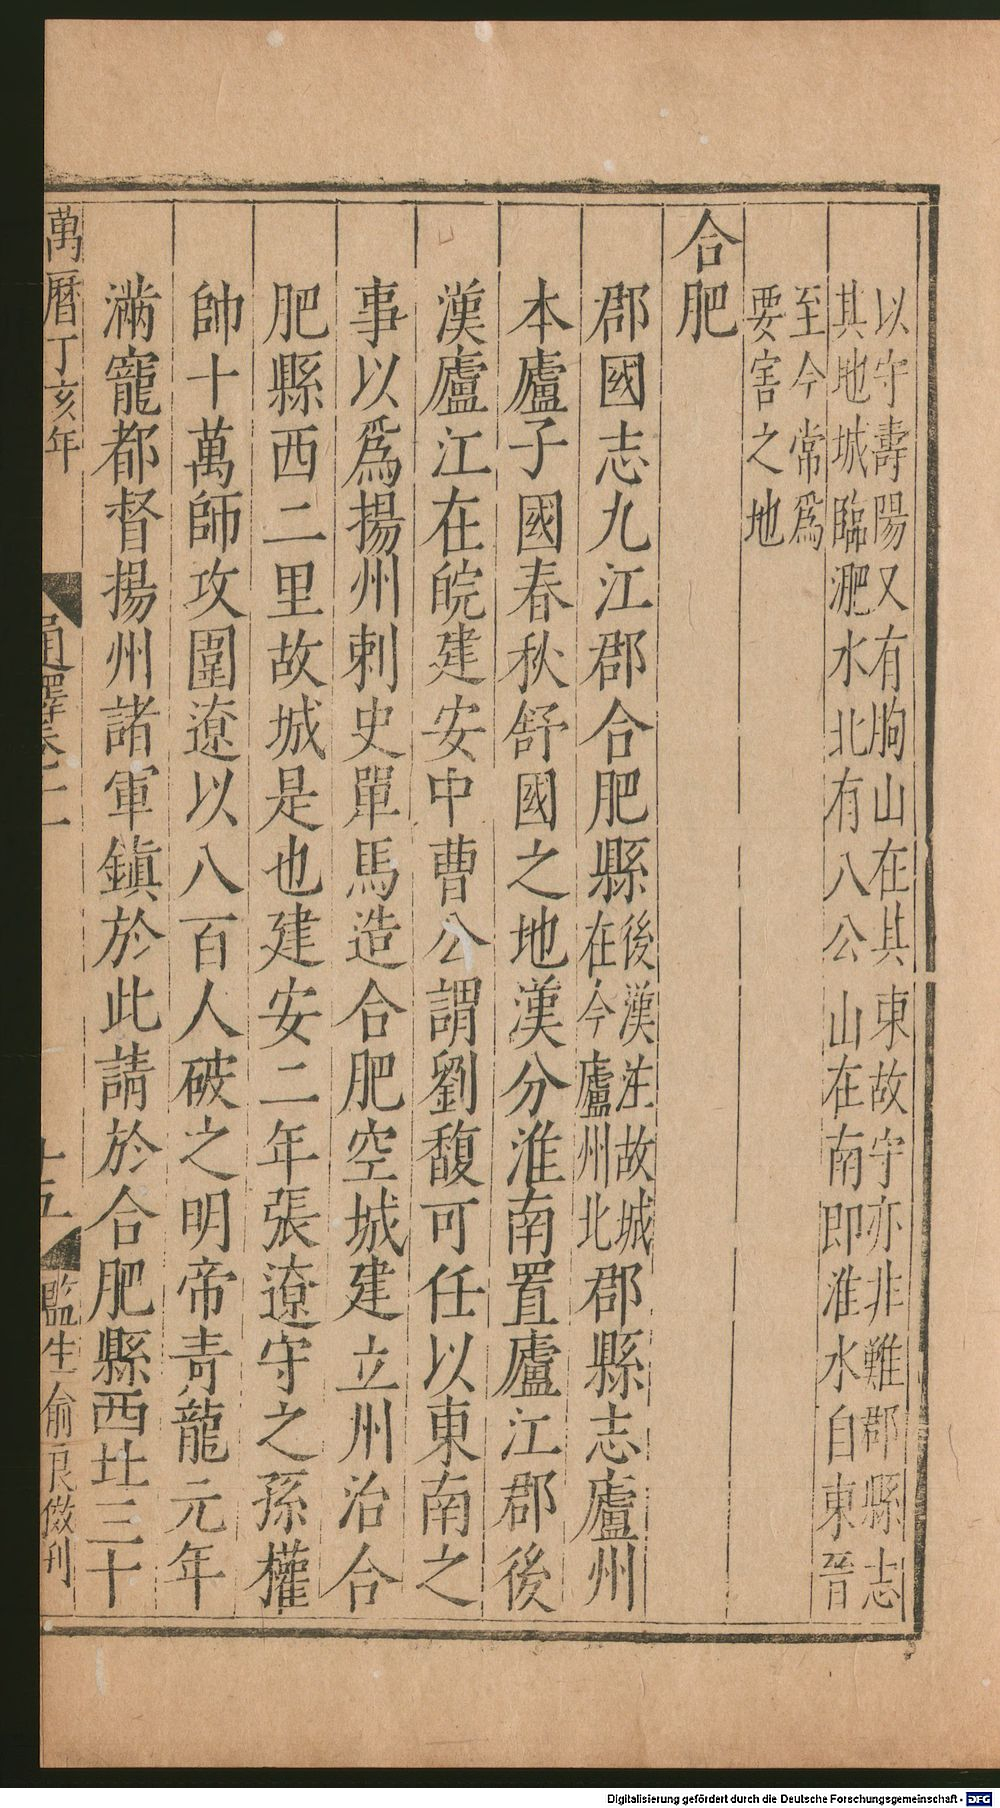 以守壽陽又有朐山在其東故守亦非難郡縣志
其地城臨淝水北有八公山在南即淮水自東晉
至今常爲
要害之地
合肥
郡國志九江郡合肥縣後漢注故城在今廬州北郡縣志廬州
本廬子國春秋舒國之地漢分淮南置廬江郡後
漢廬江在皖建安中曹公謂劉馥可任以東南之
事以爲揚州刺史單馬造合肥空城建立州治合
肥縣西二里故城是也建安二年張遼守之孫權
帥十萬師攻圍遼以八百人破之明帝青龍元年
滿寵都督揚州諸軍鎮於此請於合肥縣西北三十
萬曆丁亥年
通釋卷十二
十五
監生俞良傲刊
Digitalisierung gefördert durch die Deutsche Forschungsgemeinschaft - DFG